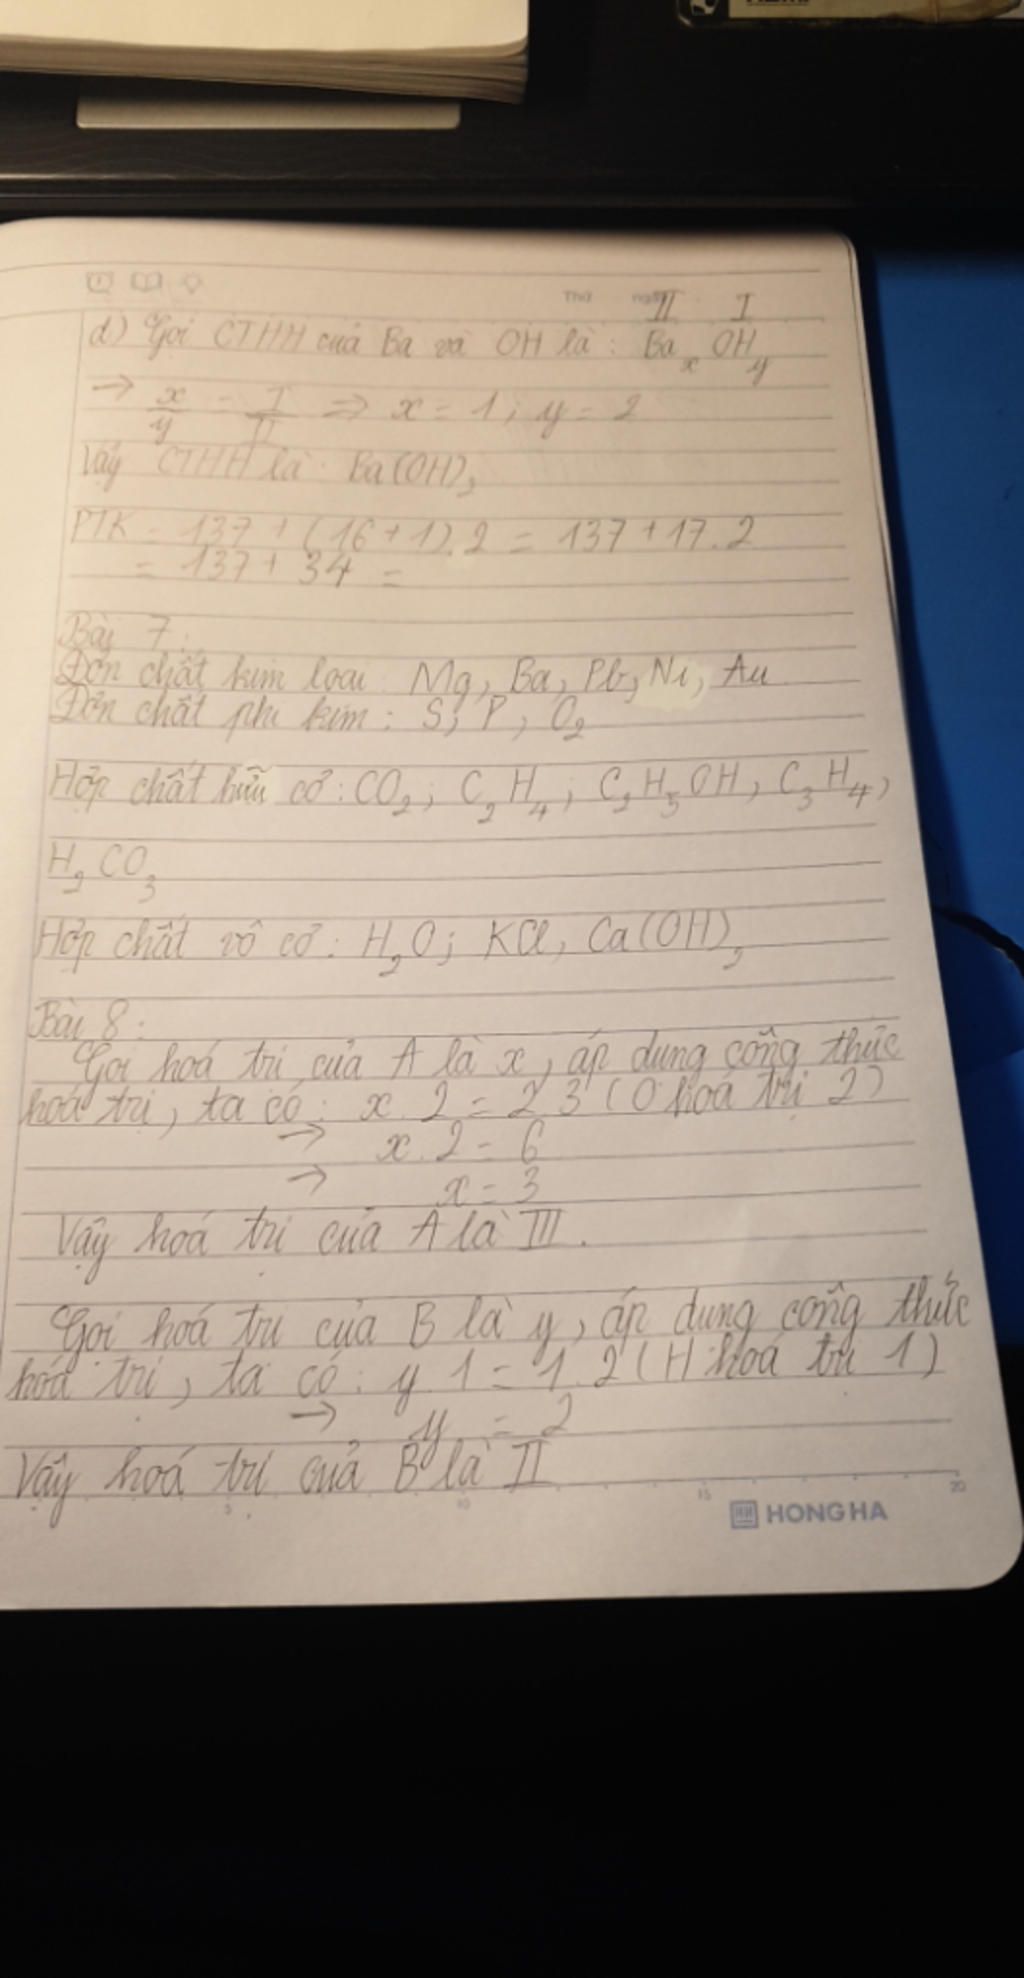 Thứ ngày
II I
d) Gọi CTHH của Ba và OH là: Baₓ OHy
→ x/y = I/II => x = 1; y = 2
Vậy CTHH là: Ba(OH)₂
PTK = 137 + (16+1).2 = 137 + 17.2
= 137 + 34 =
Bài 7:
Đơn chất kim loại: Mg, Ba, Pb, Ni, Au
Đơn chất phi kim: S, P, O₂
Hợp chất hữu cơ: CO₂; C₂H₄; C₂H₅OH, C₃H₄,
H₂CO₃
Hợp chất vô cơ: H₂O; KCl, Ca(OH)₂
Bài 8:
Gọi hoá trị của A là x, áp dụng công thức
hoá trị, ta có: x.2 = 2.3 (O hoá trị 2)
→ x.2 = 6
→ x = 3
Vậy hoá trị của A là III.
Gọi hoá trị của B là y, áp dụng công thức
hoá trị, ta có: y.1 = 1.2 (H hoá trị 1)
→ y = 2
Vậy hoá trị của B là II
5 10 15 20
HH HONG HA